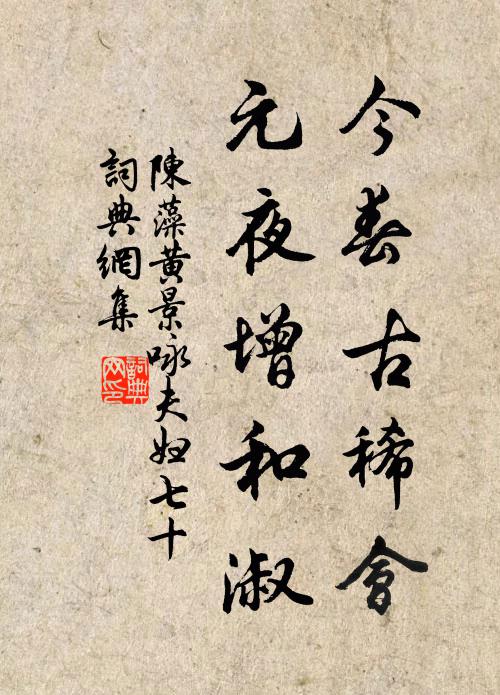 今春古稀會
元夜增和淑
陳藻黃景咏夫妇七十
詞典網集
詞典網印